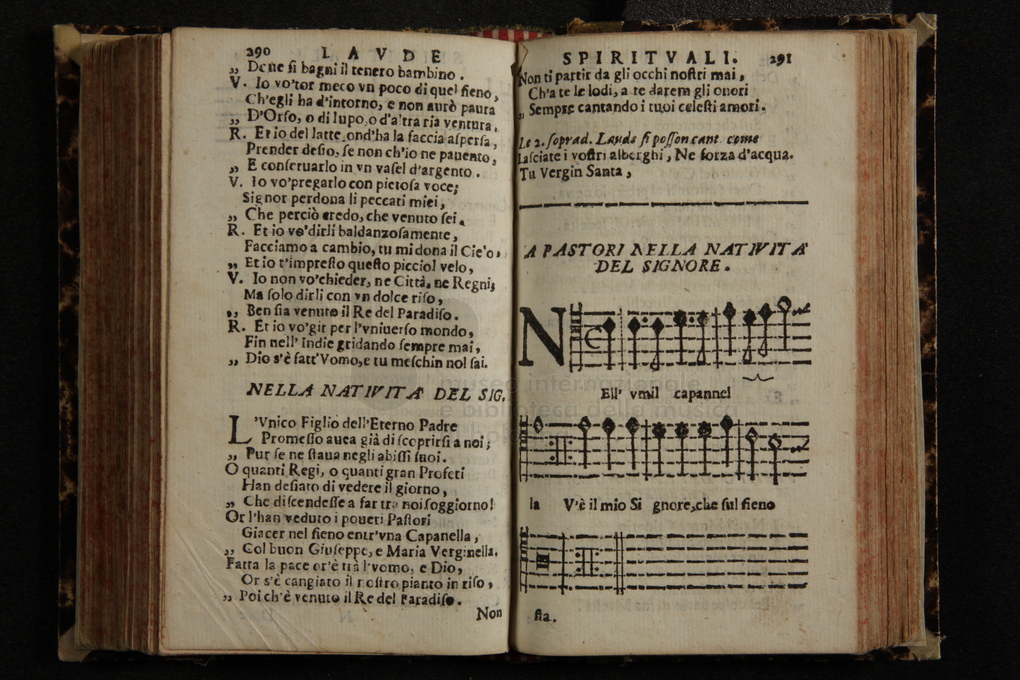 290 LAVDE
„ Deue si bagni il tenero bambino.
V. Io vo'tor meco vn poco di quel fieno,
Ch'egli ha d'intorno, e non aurò paura
„ D'Orso, o di lupo, o d'altra ria ventura.
R. Et io del latte, ond'ha la faccia aspersa,
Prender desio, se non ch'io ne pauento,
„ E conseruarlo in vn vasel d'argento.
V. Io vo'pregarlo con pietosa voce;
Signor perdona li peccati miei,
„ Che perciò credo, che venuto sei.
R. Et io vo'dirli baldanzosamente,
Facciamo a cambio, tu mi dona il Cielo,
„ Et io t'impresto questo picciol velo,
V. Io non vo'chieder, ne Città, ne Regni;
Ma solo dirli con vn dolce riso,
„ Ben sia venuto il Re del Paradiso.
R. Et io vo'gir per l'vniuerso mondo,
Fin nell' Indie gridando sempre mai,
„ Dio s'è fatt'Vomo, e tu meschin nol sai.
NELLA NATIVITA' DEL SIG.
L'Vnico Figlio dell'Eterno Padre
Promesso auea già di scoprirsi a noi;
„ Pur se ne staua negli abissi suoi.
O quanti Regi, o quanti gran Profeti
Han desiato di vedere il giorno,
„ Che discendesse a far tra noi soggiorno!
Or l'han veduto i poueri Pastori
Giacer nel fieno entr'vna Capanella,
„ Col buon Giuseppe, e Maria Verginella.
Fatta la pace or'è trà l'vomo, e Dio,
Or s'è cangiato il nostro pianto in riso,
„ Poi ch'è venuto il Re del Paradiso.
Non
SPIRITVALI. 291
Non ti partir da gli occhi nostri mai,
Ch'a te le lodi, a te darem gli onori
„ Sempre cantando i tuoi celesti amori.
Le 2. soprad. Laude si posson cant. come
Lasciate i vostri alberghi, Ne forza d'acqua.
Tu Vergin Santa,
A PASTORI NELLA NATIVITA'
DEL SIGNORE.
NEll' vmil capannel
la V'è il mio Si gnore, che sul fieno
sta.
museo internazionale
e biblioteca della musica